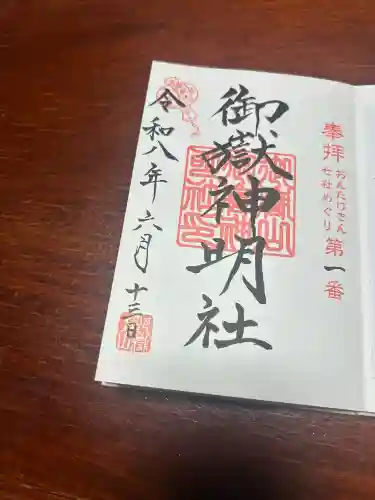 奉拝
おんたけさん
七社めぐり
第一番
御嶽神明社
令和八年六月十三日